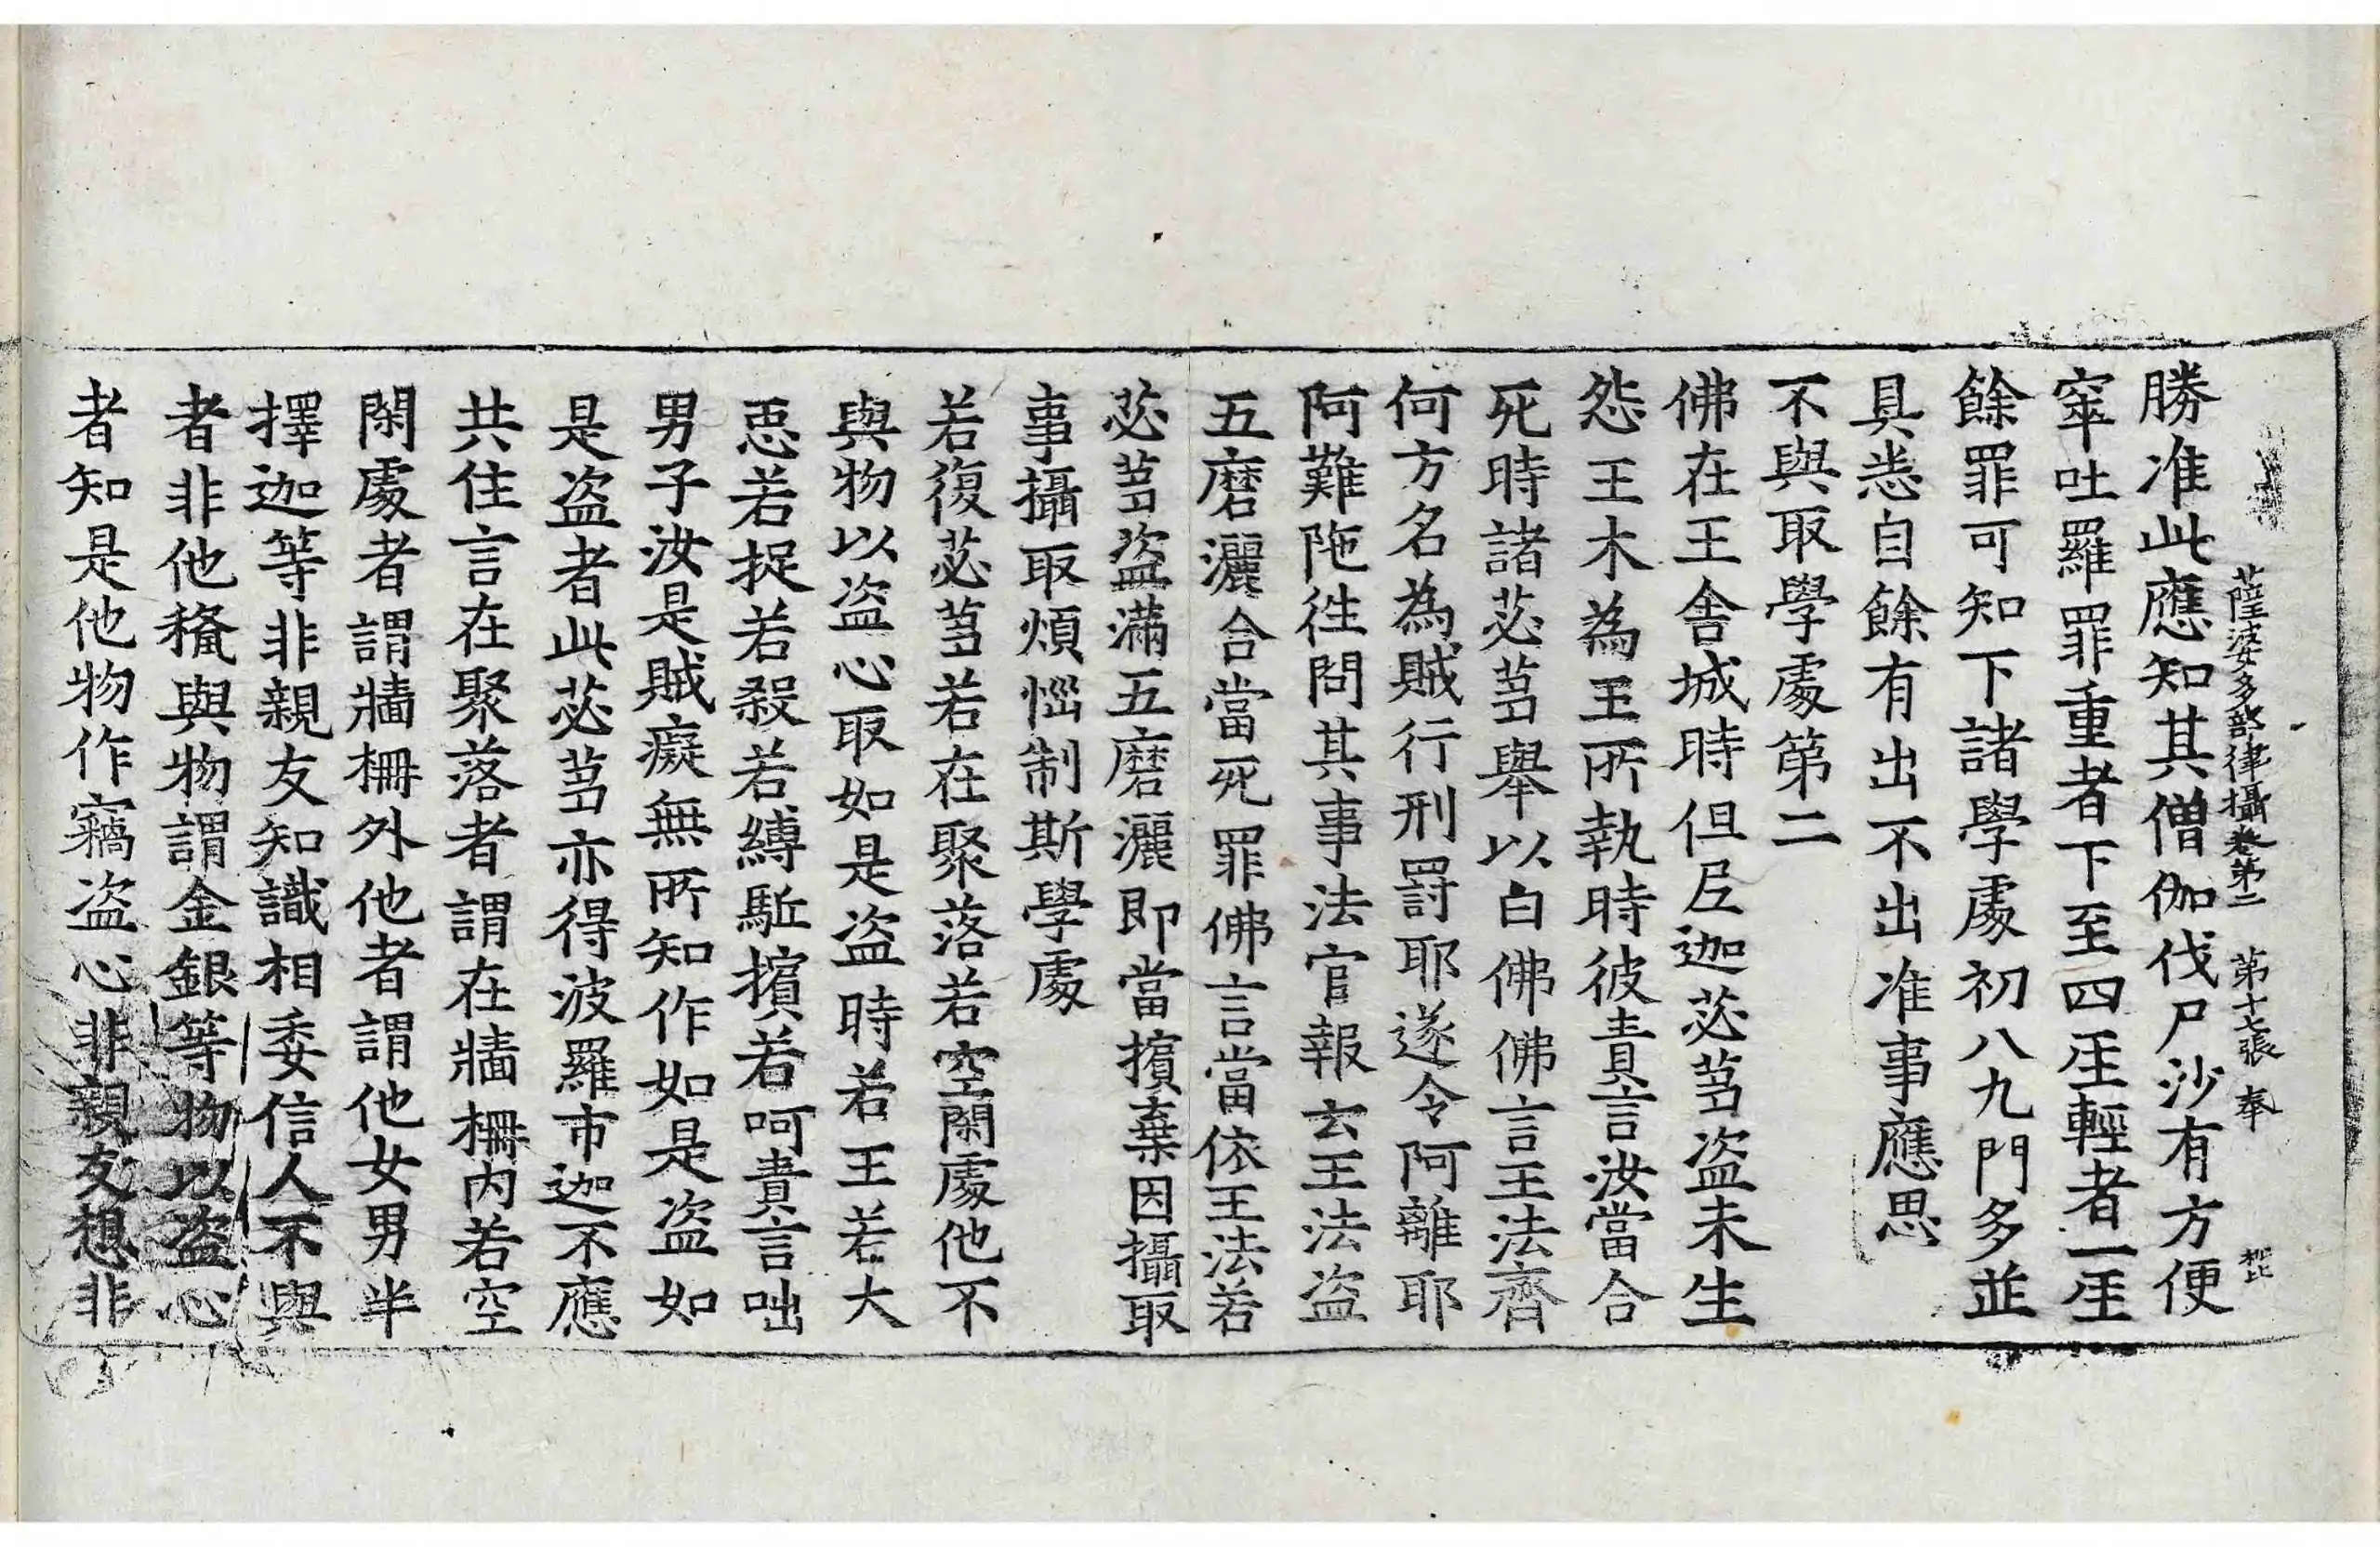 薩婆多部律攝卷第二 第十七張 奉
勝准此應知其僧伽伐尸沙有方便
窣吐羅罪重者下至四𤯔輕者一𤯔
餘罪可知下諸學處初八九門多並
具恙自餘有出不出准事應思
不與取學處第二
佛在王舍城時但𡰱迦苾蒭盜未生
怨王木為王所執時彼責言汝當合
死時諸苾蒭舉以白佛佛言王法齊
何方名為賊行刑罰耶遂令阿離耶
阿難陁往問其事法官報云王法盜
五磨灑合當死罪佛言當依王法若
苾蒭盜滿五磨灑即當擯棄因攝取
事攝取煩惱制斯學處
若復苾蒭若在聚落若空閑處他不
與物以盜心取如是盜時若王若大
惡若捉若殺若縛駈擯若呵責言咄
男子汝是賊癡無所知作如是盜如
是盜者此苾蒭亦得波羅市迦不應
共住言在聚落者謂在牆柵內若空
閑處者謂牆柵外他者謂他女男半
擇迦等非親友知識相委信人不與
者非他㲉與物謂金銀等物以盜心
者知是他物作竊盜心非親友想非